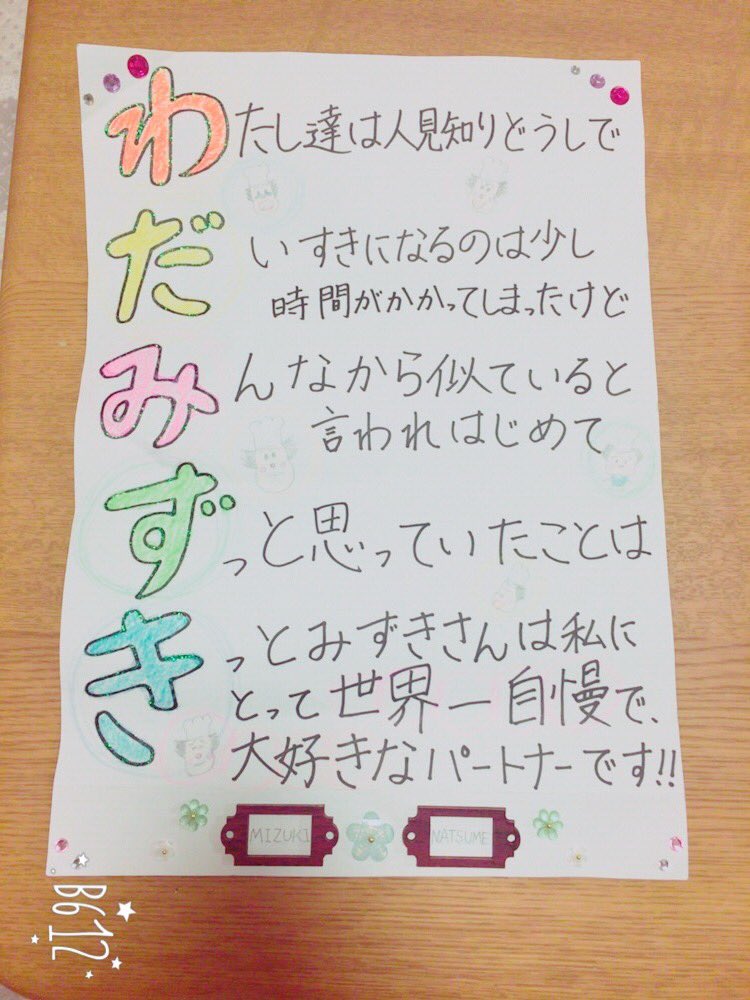 わたし達は人見知りどうしで
だいすきになるのは少し
時間がかかってしまったけど
みんなから似ていると
言われはじめて
ずっと思っていたことは
きっとみずきさんは私に
とって世界一自慢で、
大好きなパートナーです!!
MIZUKI NATSUME
B612